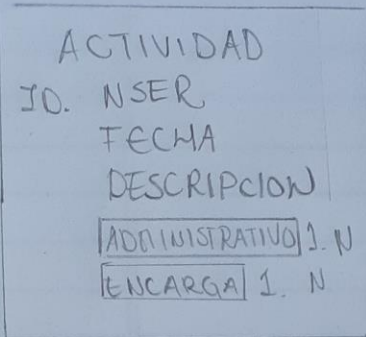 ACTIVIDAD
ID. NSER
FECHA
DESCRIPCION
ADMINISTRATIVO 1. N
ENCARGA 1. N